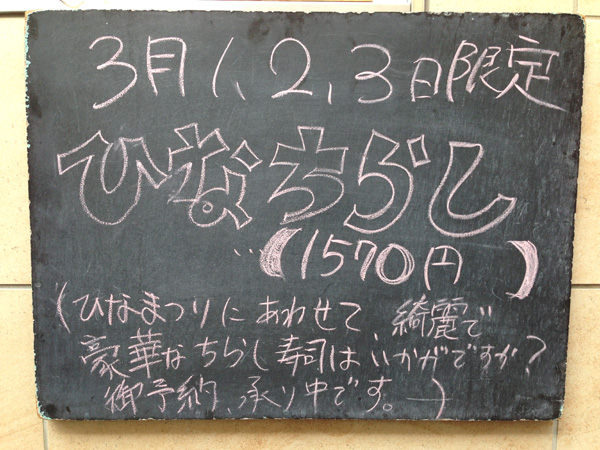 3月1、2、3日限定
ひなちらし
…(1570円)
(ひなまつりにあわせて 綺麗で
豪華なちらし寿司はいかがですか?
御予約、承り中です。)